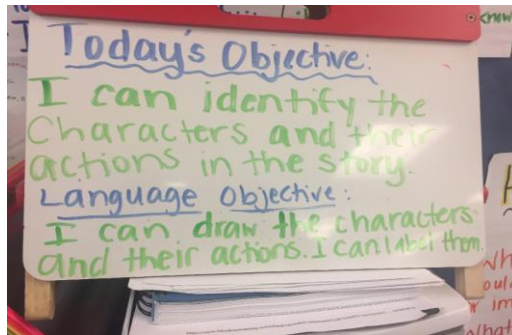 know
Today's Objective:
I can identify the
Characters and their
actions in the story.
Language Objective:
I can draw the characters
and their actions. I can label them.
Wh
What